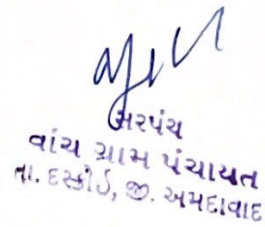 સરપંચ
વાંચ ગ્રામ પંચાયત
તા. દસ્ક્રોઈ, જી. અમદાવાદ